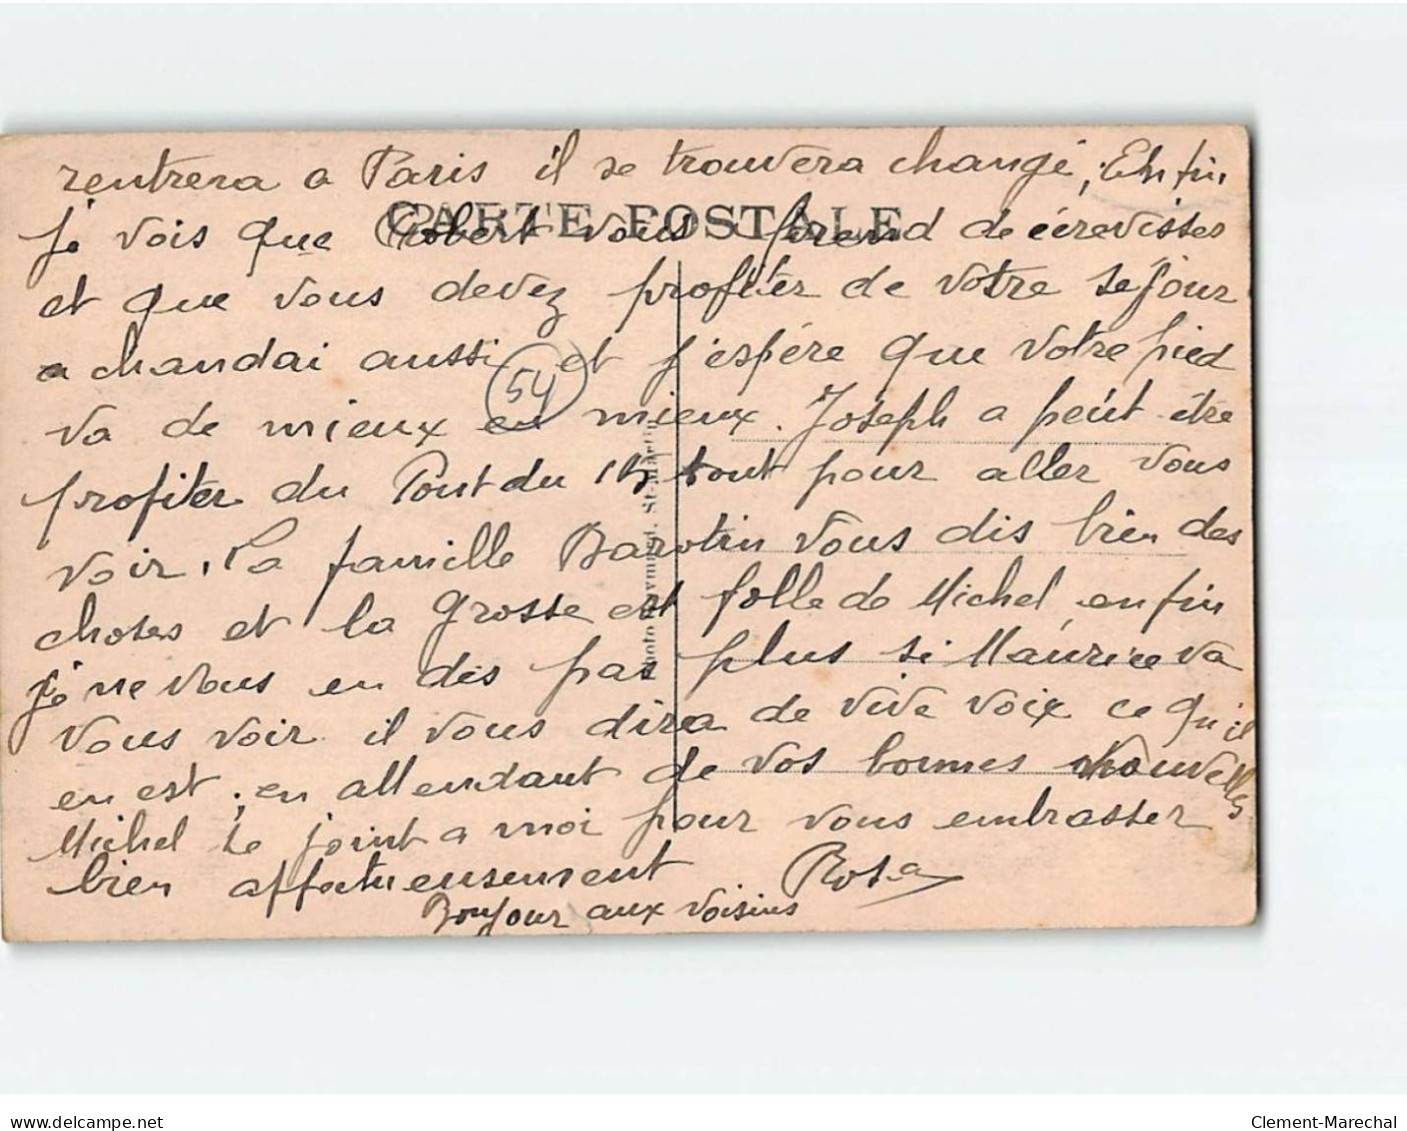 rentrera a Paris il se trouvera changé, Enfin
CARTE POSTALE
je vois que Robert vous prend de écrevisses
et que vous devez profiter de votre séjour
a chandai aussi et j'espère que votre pied
54
va de mieux en mieux. Joseph a peut être
profiter du Pont du 15 tout pour aller vous
voir. La famille Barotin vous dis bien des
choses et la grosse est folle de Michel enfin
je ne vous en dis pas plus si Maurice va
vous voir il vous dira de vive voix ce qu'il
en est, en attendant de vos bonnes nouvelles
Michel se joint a moi pour vous embrasser
bien affectueusement Rosa
Bonjour aux voisins
delcampe.net
Clement-Marechal